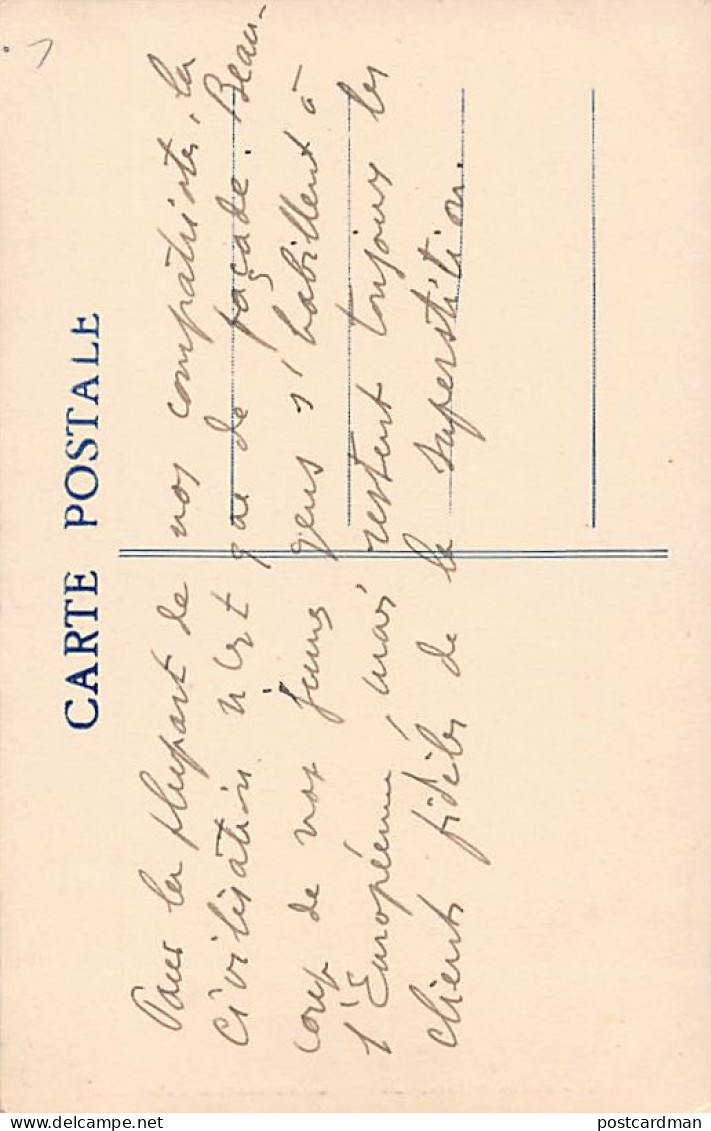 CARTE POSTALE
Pour la plupart de nos compatriotes, la
civilisation n'est que de façade. Beau-
coup de nos jeunes gens s'habillent à
l'Européenne, mais restent toujours les
clients fidèles de la superstition.
postcardman